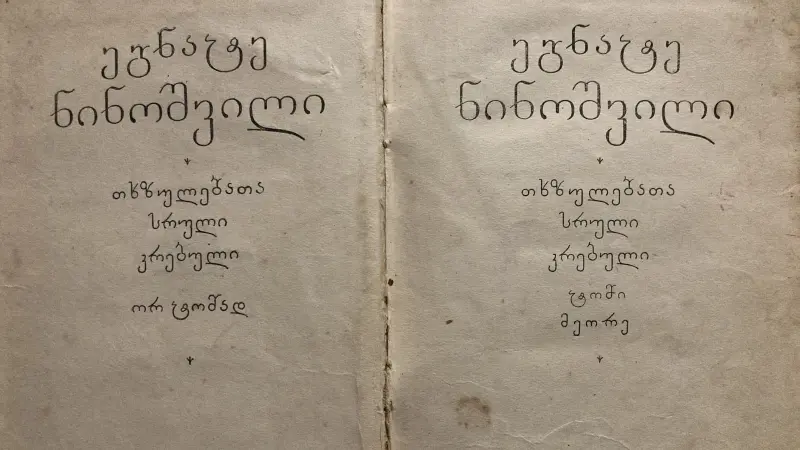 ეგნატე
ნინოშვილი
თხზულებათა
სრული
კრებული
ორ ტომად
ეგნატე
ნინოშვილი
თხზულებათა
სრული
კრებული
ტომი
მეორე